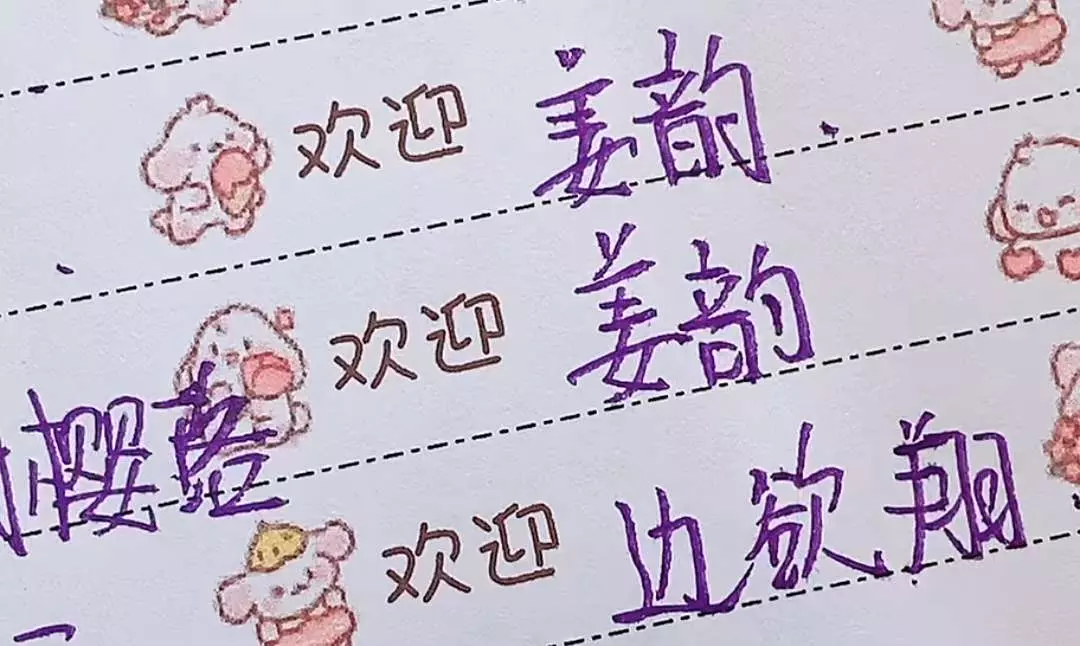 欢迎 姜韵
欢迎 姜韵
樱蓉
欢迎 边欲翔